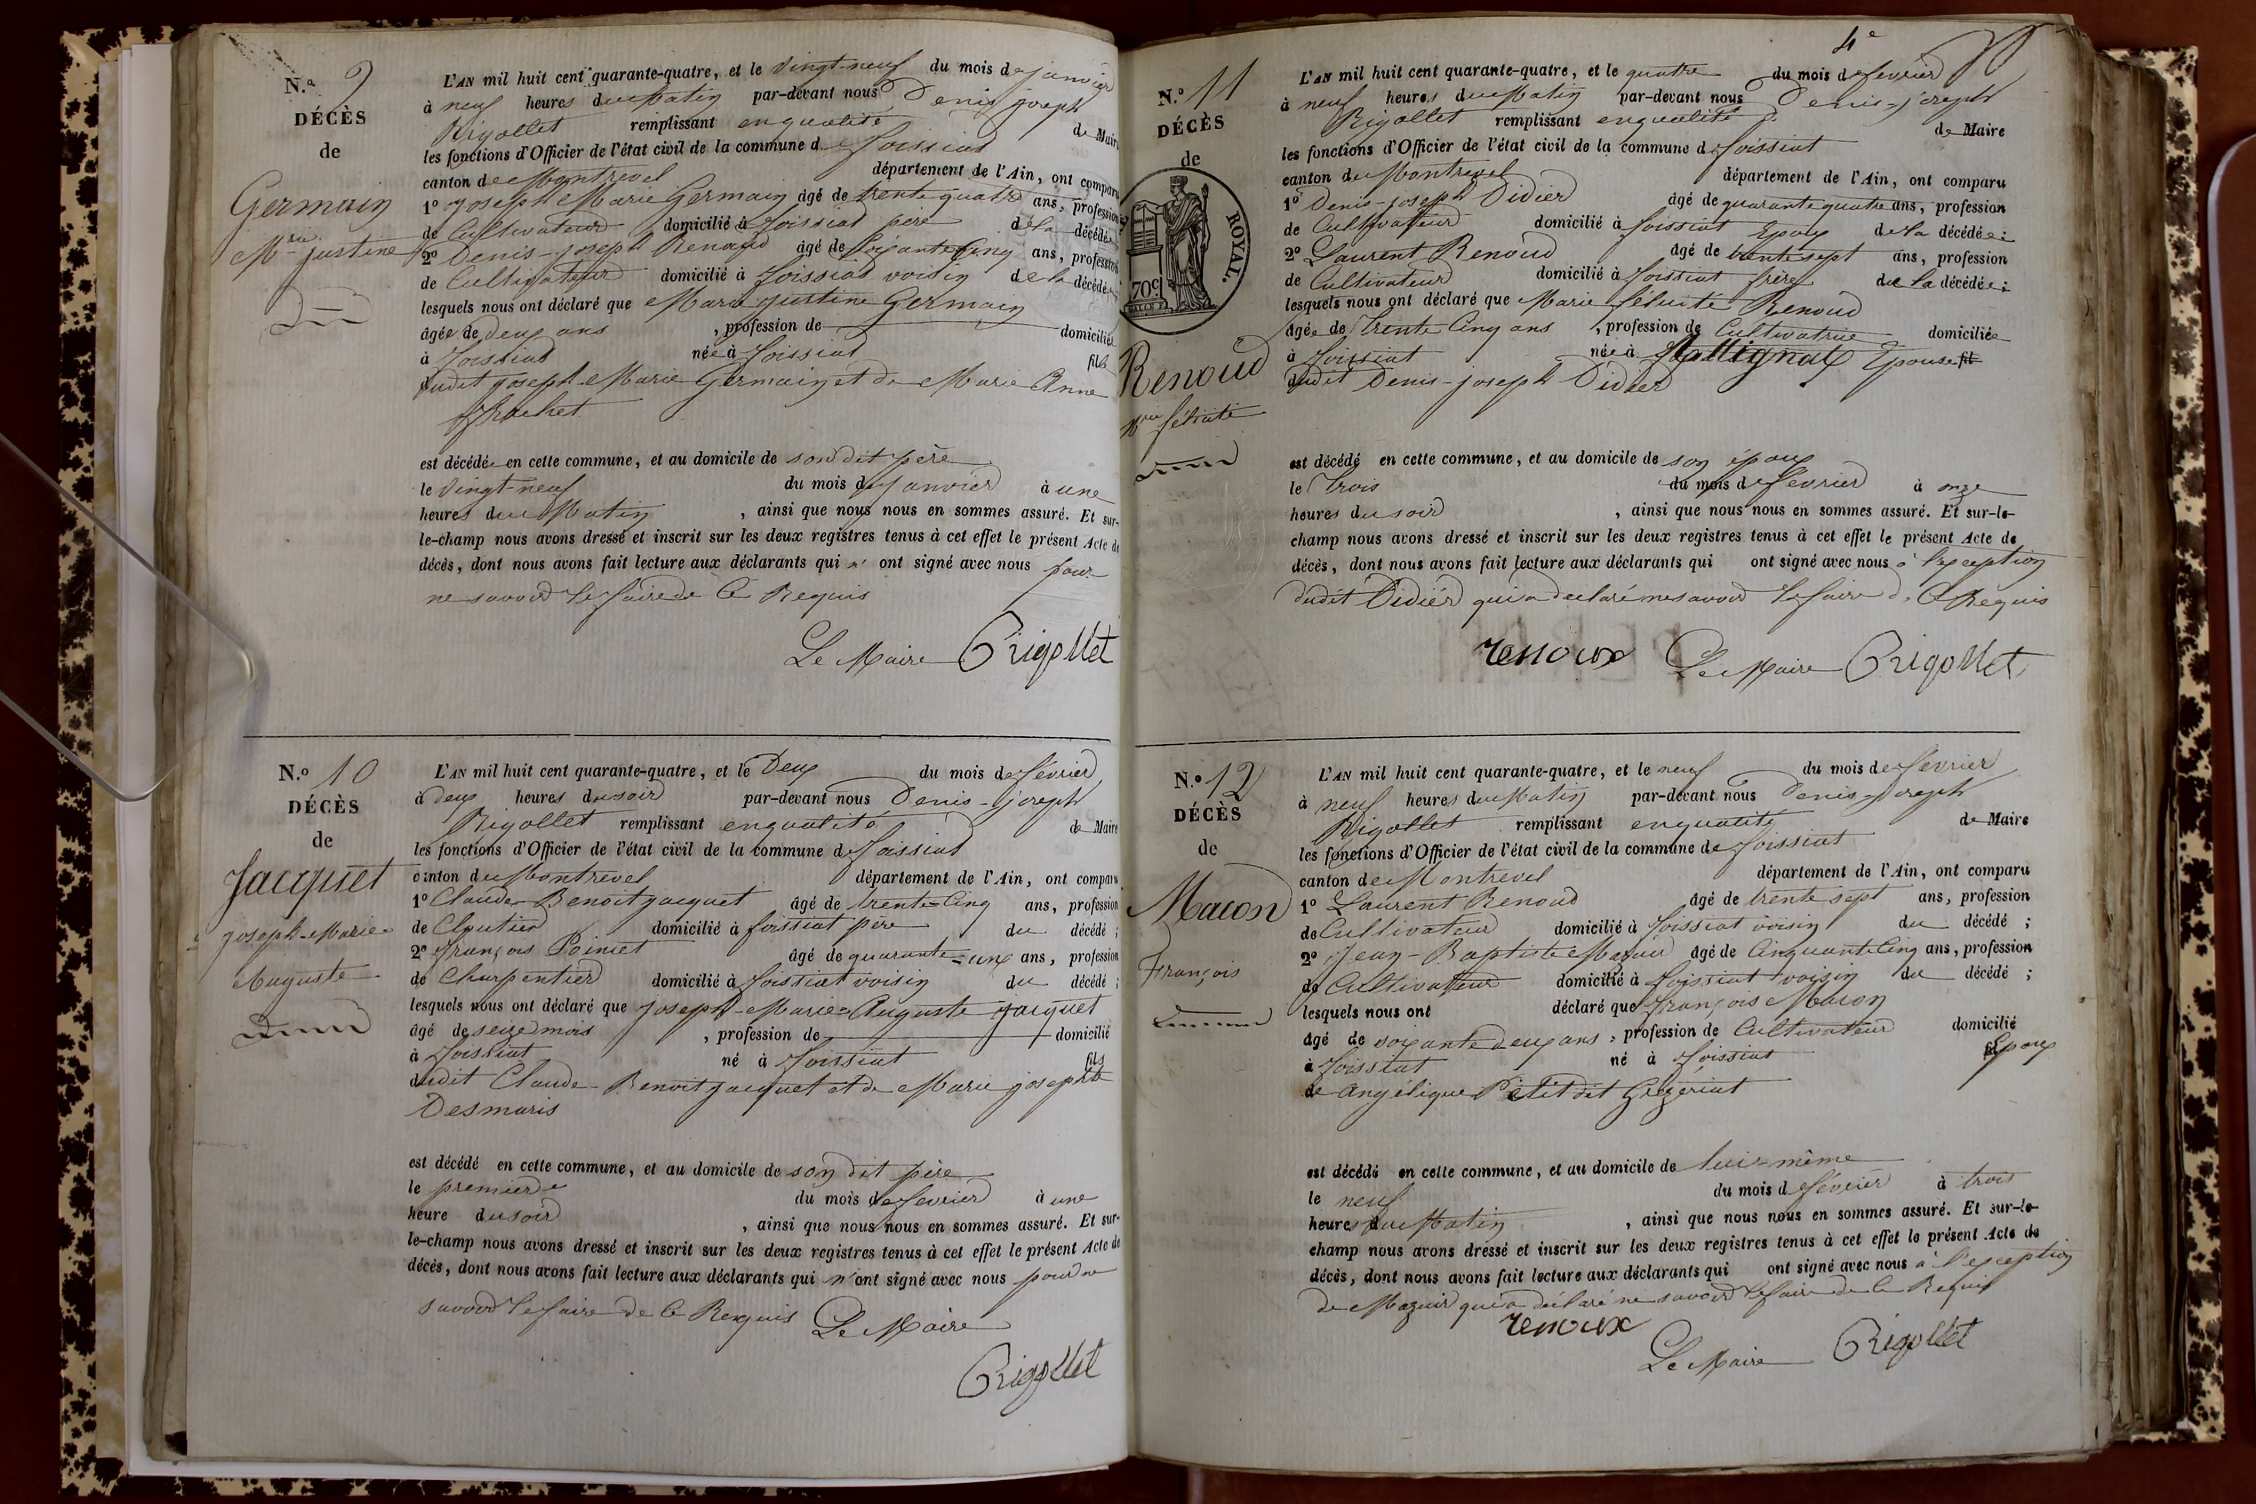 N.o 9
DÉCÈS
de
Germain
Mie justine
L'AN mil huit cent quarante-quatre, et le vingt-neuf du mois de janvier
à neuf heures du Matin par-devant nous Denis joseph
Rigollet remplissant en qualité de Maire
les fonctions d'Officier de l'état civil de la commune de foissiat
canton de Montrevel département de l'Ain, ont comparu
1o joseph Marie Germain âgé de trente quatre ans, profession
de Cultivateur domicilié à foissiat père de la décédée
2o Denis-joseph Renoud âgé de soixante Cinq ans, profession
de Cultivateur domicilié à foissiat voisin de la décédée
lesquels nous ont déclaré que Marie justine Germain
âgée de deux ans , profession de domiciliée
à foissiat née à foissiat fille
dudit joseph-Marie Germain et de Marie Anne
est décédée en cette commune, et au domicile de son dit père
le vingt-neuf du mois de janvier à une
heures du Matin , ainsi que nous nous en sommes assuré. Et sur-
le-champ nous avons dressé et inscrit sur les deux registres tenus à cet effet le présent Acte de
décès, dont nous avons fait lecture aux déclarants qui n' ont signé avec nous pour
ne savoir le faire de Ce Requis
Le Maire Rigollet
N.o 10
DÉCÈS
de
Jacquet
joseph-Marie-
Auguste
L'AN mil huit cent quarante-quatre, et le Deux du mois de février
à deux heures du soir par-devant nous Denis-joseph
Rigollet remplissant en qualité de Maire
les fonctions d'Officier de l'état civil de la commune de foissiat
canton de Montrevel département de l'Ain, ont comparu
1o Claude-Benoit jacquet âgé de trente-Cinq ans, profession
de Cloutier domicilié à foissiat père du décédé ;
2o françois Poincet âgé de quarante-une ans, profession
de Charpentier domicilié à foissiat voisin du décédé ;
lesquels nous ont déclaré que joseph-Marie-Auguste jacquet
âgé de seize mois , profession de domicilié
à foissiat né à foissiat fils
dudit Claude-Benoit jacquet et de Marie josephte
Desmaris
est décédé en cette commune, et au domicile de son dit père
le premier du mois de fevrier à une
heure du soir , ainsi que nous nous en sommes assuré. Et sur-
le-champ nous avons dressé et inscrit sur les deux registres tenus à cet effet le présent Acte de
décès, dont nous avons fait lecture aux déclarants qui n'ont signé avec nous pour ne
savoir le faire de Ce Requis Le Maire
Rigollet
4e
N.o 11
DÉCÈS
de
ROYAL.
70c
Renoud
Mie félicité
L'AN mil huit cent quarante-quatre, et le quatre du mois de fevrier
à neuf heures du Matin par-devant nous Denis-joseph
Rigollet remplissant en qualité de Maire
les fonctions d'Officier de l'état civil de la commune de foissiat
canton de Montrevel département de l'Ain, ont comparu
1o Denis-joseph Didier âgé de quarante quatre ans, profession
de Cultivateur domicilié à foissiat Epoux de la décédée ;
2o Laurent Renoud âgé de trente sept ans, profession
de Cultivateur domicilié à foissiat frère de la décédée ;
lesquels nous ont déclaré que Marie félicité Renoud
âgée de trente Cinq ans , profession de Cultivatrice domiciliée
à foissiat née à Attignat Epouse fil
dudit Denis-joseph Didier
est décédé en cette commune, et au domicile de son époux
le trois du mois de fevrier à onze
heures du soir , ainsi que nous nous en sommes assuré. Et sur-le-
champ nous avons dressé et inscrit sur les deux registres tenus à cet effet le présent Acte de
décès, dont nous avons fait lecture aux déclarants qui ont signé avec nous à l'exception
dudit Didier qui a déclaré ne savoir le faire de Ce Requis
renoux Le Maire Rigollet
N.o 12
DÉCÈS
de
Macon
François
L'AN mil huit cent quarante-quatre, et le neuf du mois de fevrier
à neuf heures du Matin par-devant nous Denis-joseph
Rigollet remplissant en qualité de Maire
les fonctions d'Officier de l'état civil de la commune de foissiat
canton de Montrevel département de l'Ain, ont comparu
1o Laurent Renoud âgé de trente sept ans, profession
de Cultivateur domicilié à foissiat voisin du décédé ;
2o Jean-Baptiste Mazuir âgé de Cinquante Cinq ans, profession
de Cultivateur domicilié à foissiat voisin du décédé ;
lesquels nous ont déclaré que françois Macon
âgé de soixante deux ans , profession de Cultivateur domicilié
à foissiat né à foissiat fil Epoux
de Angélique Petit dit Grézériat
est décédé en cette commune, et au domicile de lui-même
le neuf du mois de février à trois
heures du Matin , ainsi que nous nous en sommes assuré. Et sur-le-
champ nous avons dressé et inscrit sur les deux registres tenus à cet effet le présent Acte de
décès, dont nous avons fait lecture aux déclarants qui ont signé avec nous à l'exception
de Mazuir qui a déclaré ne savoir le faire de Ce Requis
renoux
Le Maire Rigollet